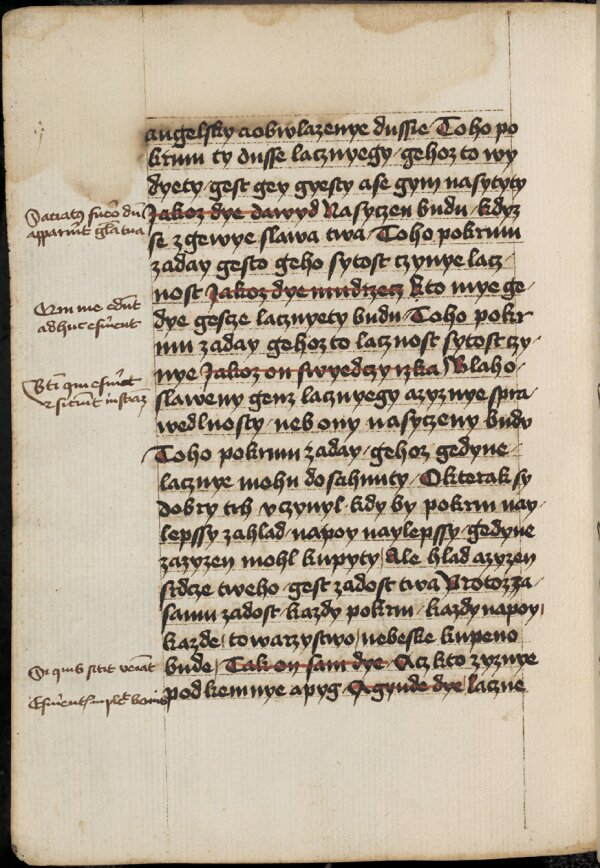 angelsky aobwlazenye dussie Toho po
krmu ty dusse lacznyegy gehoz to wy
dyety gest gey gyesty ase gym nasytyty
Jakoz dye dawyd Nasyczen budu kdyz
se zgewye slawa twa Toho pokrmu
zaday gesto geho sytost czynye lacz
nost Jakoz dye mudrzecz Kto mye ge
dye gescze lacznyety budu Toho pokr
mu zaday gehoz to lacznost sytost czy
nye Jakoz on swyedczy rzka Blaho
slaweny genz lacznyegy azyznye spra
wedlnosty neb ony nasyczeny budu
Toho pokrmu zaday gehoz gedyne
lacznye mohu dosahnuty O kterak sy
dobry trh vczynyl kdy by pokrm nay
lepssy zahlad napoy naylepssy gedyne
zazyzen mohl kupyty Ale hlad azyzen
srdcze tweho gest zadost twa Protozza
samu zadost kazdy pokrm kazdy napoy
kazde towarzystwo nebeske kupeno
bude Tak on sam dye Acz kto zyznye
pod kemnye apyg Agynde dye laczne
Saciabor fuero dum
apparuerit gloria tua
Qui me edunt
adhuc esurient
Bti qui esuriunt
et sitiunt iusticiam
Si quis sitit veniat
Esurientes impleuit bonis